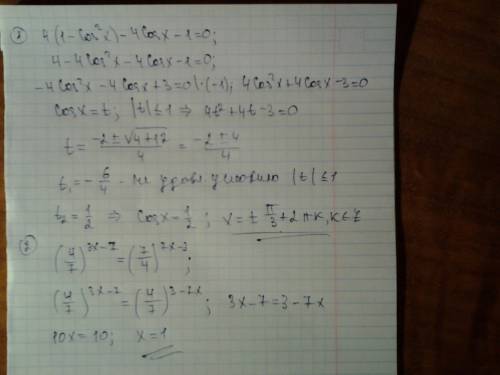 ③ 4(1-cos²x)-4cosx-1=0;
4-4cos²x-4cosx-1=0;
-4cos²x-4cosx+3=0|·(-1); 4cos²x+4cosx-3=0
cosx=t; |t|≤1 ⇒ 4t²+4t-3=0
t = (-2±√(4+12))/4 = (-2±4)/4
t₁=-6/4 - не удовл. условию |t|≤1
t₂=1/2 ⇒ cosx=1/2; x=±π/3+2πk, k∈Z
(4/7)^(3x-7)=(7/4)^(7x-3);
(4/7)^(3x-7)=(4/7)^(3-7x); 3x-7=3-7x
10x=10; x=1